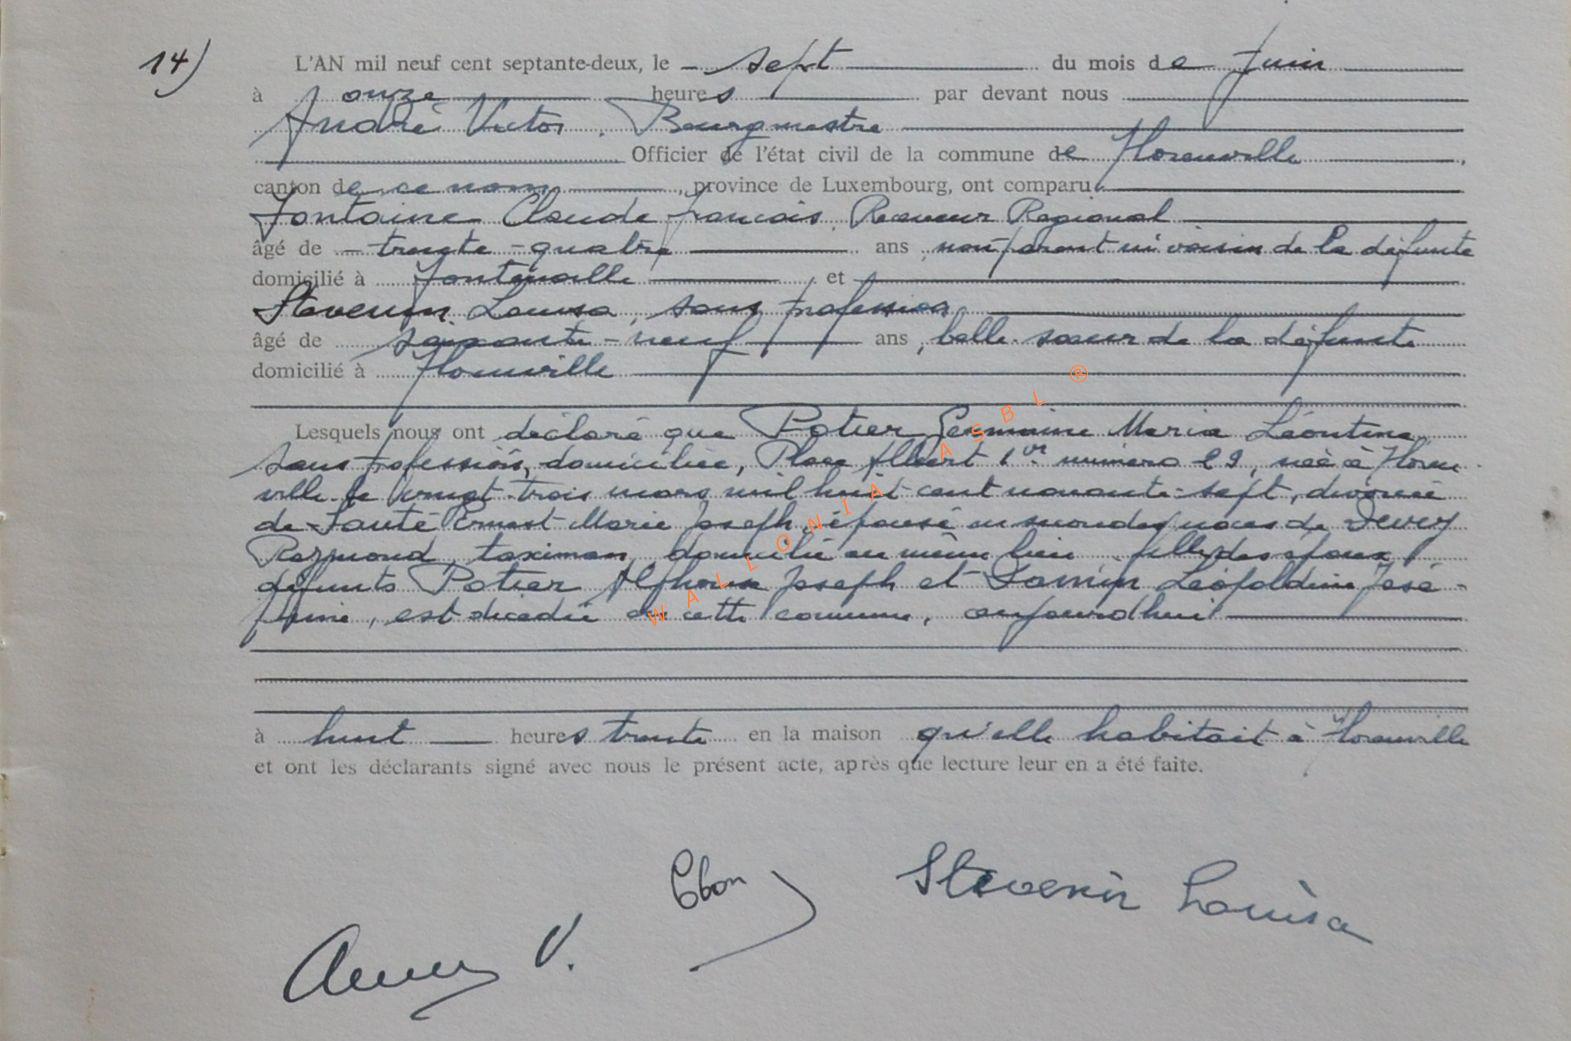 14) L'AN mil neuf cent septante-deux, le sept du mois de Juin
à onze heures par devant nous
André Victor, Bourgmestre
Officier de l'état civil de la commune de Florenville,
canton de ce nom, province de Luxembourg, ont comparu
Fontaine Claude François, Receveur Régional
âgé de trente-quatre ans, non parent ni voisin de la défunte
domicilié à Fontenoille, et
Stevenin Louisa, sans profession
âgé de soixante-neuf ans, belle-soeur de la défunte
domicilié à Florenville
Lesquels nous ont déclaré que Potier Germaine Maria Léontine,
sans profession, domiciliée, Place Albert 1er numéro 29, née à Floren-
ville le vingt-trois mars mil huit cent nonante-sept, divorcée
de Ernest Marie Joseph, épouse en secondes noces de Devey
Raymond, taximan, domicilié au même lieu, fille des époux
défunts Potier Alphonse Joseph et Léopoldine José-
phine, est décédée en cette commune, aujourd'hui
à huit heures trente en la maison qu'elle habitait à Florenville
et ont les déclarants signé avec nous le présent acte, après que lecture leur en a été faite.
Stevenin Louisa
V.
WALLONIA ASBL ®